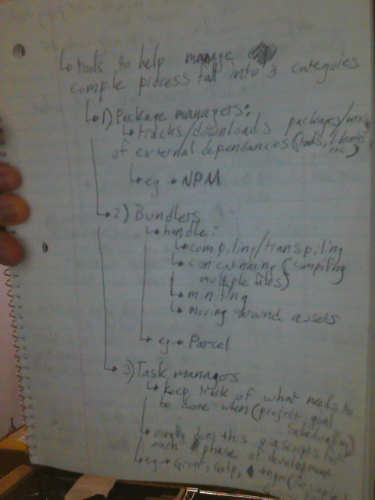 ↳ tools to help manage
compile process fall into 3 categories
↳ 1) Package managers:
↳ tracks/downloads packages/
of external dependancies (tools, etc)
↳ eg → NPM
↳ 2) Bundlers
↳ handle:
↳ compiling/transpiling
↳ (compiling
multiple files)
↳ minifing
↳ moving around assets
↳ eg → Parcel
↳ 3) Task managers
↳ keep track of what needs to
be done when (project goal
↳ usually does this via scripts for
each phase of development
↳ eg → Grunt, Gulp,